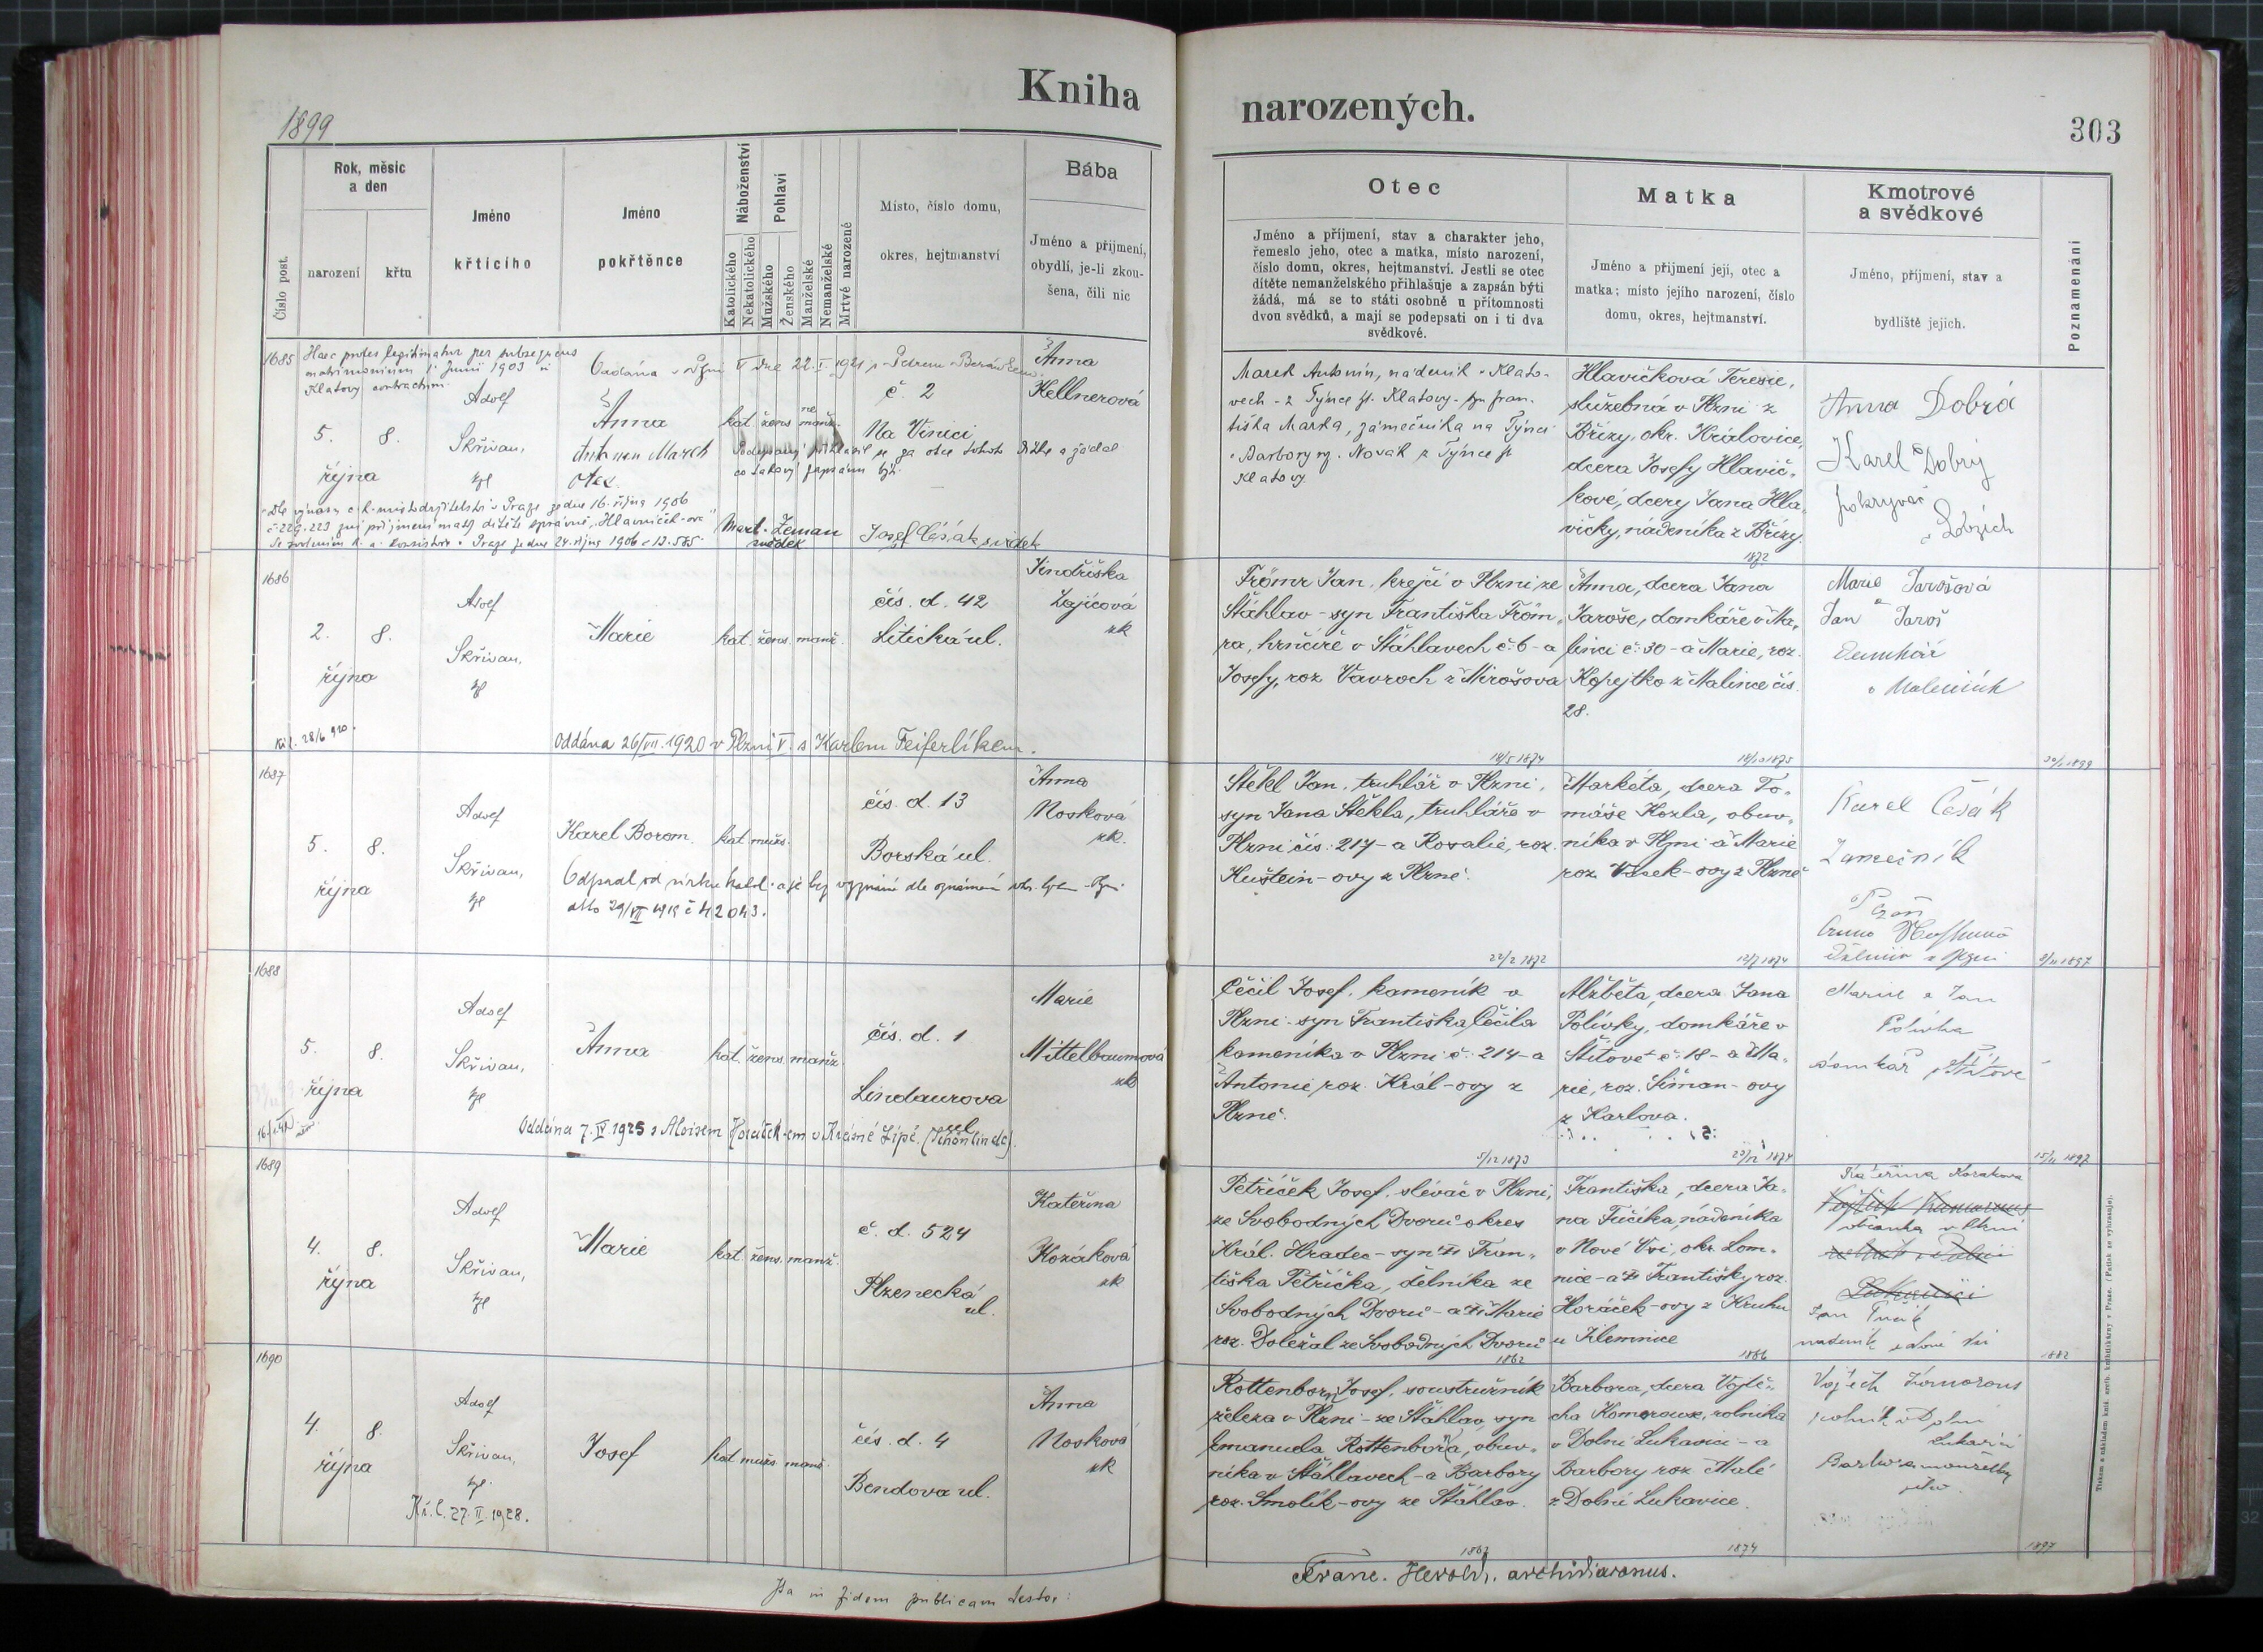 Kniha
narozených.
1899
303
Číslo post.
Rok, měsíc
a den
narození
křtu
Jméno
křtícího
Jméno
pokřtěnce
Náboženství
Katolického
Nekatolického
Pohlaví
Mužského
Ženského
Manželské
Nemanželské
Mrtvě narozené
Místo, číslo domu,
okres, hejtmanství
Bába
Jméno a příjmení,
obydlí, je-li zkou-
šena, čili nic
Otec
Jméno a příjmení, stav a charakter jeho,
řemeslo jeho, otec a matka, místo narození,
číslo domu, okres, hejtmanství. Jestli se otec
dítěte nemanželského přihlašuje a zapsán býti
žádá, má se to státi osobně u přítomnosti
dvou svědků, a mají se podepsati on i ti dva
svědkové.
Matka
Jméno a příjmení její, otec a
matka; místo jejího narození, číslo
domu, okres, hejtmanství.
Kmotrové
a svědkové
Jméno, příjmení, stav a
bydliště jejich.
Poznamenání
1685
Haec proles legitimatur per subsequens
matrimonium 1. Junii 1903 in
Klatovy contractum.
Oddána v Plzni V dne 22. I. 1921 s Petrem Beránkem
5. 8.
října
Adolf
Skřivan,
kpl
Anna
Antonín Marek
Otec.
kat. žens. ne manž.
č. 2
Na Vinici
Podepsaný přihlásil se za otce tohoto dítěte a žádal
co takový zapsánu být.
Anna
Kellnerová
Dle výnosu c. k. místodržitelství v Praze ze dne 16. října 1906
č. 229.223 zní příjmení matky dítěte správně "Hlavniček-ová"
Mart. Zeman
svědek
Josef Cišák svědek
Marek Antonín, nádeník v Klato-
vech - z Týnce p. Klatovy - syn Fran-
tiška Marka, zámečníka na Týnci
a Barbory roz. Novák z Týnce p
Klatovy.
Hlavičková Terezie,
služebná v Plzni z
Břízy, okr. Kralovice,
dcera Josefy Hlavič-
kové, dcery Jana Hla-
vičky, nádeníka z Břízy.
1872
Anna Dobrá
Karel Dobrý
pokryvač
v Lobzích
1686
2. 8.
října
Adolf
Skřivan,
kpl
Marie
kat. žens. manž.
čís. d. 42
Litická ul.
Jindřiška
Zajícová
zk
Kř. l. 28/6 920.
Oddána 26/VII. 1920 v Plzni V. s Karlem Feiferlíkem.
Frömr Jan, krejčí v Plzni ze
Šťáhlav - syn Františka Fröm-
ra, hrnčíře v Šťáhlavech č. 6 - a
Josefy, roz Vavroch z Mirošova
18/5 1874
Anna, dcera Jana
Jaroše, domkáře v Ma-
linci č. 30 - a Marie, roz.
Kopejtko z Malince čís.
28.
18/10 1875
Marie Jarošová
Jan Jaroš
Domkář
v Malincích
1687
5. 8.
října
Adolf
Skřivan,
kpl
Karel Borom.
kat. mužs.
čís. d. 13
Borská ul.
Anna
Nosková
zk.
Štěkl Jan, truhlář v Plzni,
syn Jana Štěkla, truhláře v
Plzni čís. 217 - a Rosalie, roz.
22/2 1872
Markéta, dcera To-
máše Kozla, obuv-
níka v Plzni - a Marie
12/7 1874
Karel Cešák
Zámečník
1688
5. 8.
října
Adolf
Skřivan,
kpl
Anna
kat. žens. manž.
čís. d. 1
Lindaurova
ul.
Marie
Mittelbaumová
zk
Oddána 7. IV. 1925 s Aloisem Horáček-em v Krásné Lípě. (Schönlinde).
Čečil Josef, kameník v
Plzni - syn Františka Čečila
kameníka v Plzni č. 214 - a
Antonie roz. Král-ovy z
Plzně.
5/12 1873
Alžběta, dcera Jana
Polívky, domkáře v
Štítově č. 18 - a Ma-
rie, roz. Šiman-ovy
z Karlova.
23/12 1874
Marie a Jan
Polívka
domkář Štítov
15/11 1897
1689
4. 8.
října
Adolf
Skřivan,
kpl
Marie
kat. žens. manž.
č. d. 524
Plzenecká
ul.
Kateřina
Kozáková
zk
Petříček Josef, slévač v Plzni,
ze Svobodných Dvorů okres
Král. Hradec - syn † Fran-
tiška Petříčka, dělníka ze
Svobodných Dvorů - a † Marie
roz. Doležal ze Svobodných Dvorů
1862
Františka, dcera Ja-
na Fučíka, nádeníka
v Nové Vsi, okr. Lom-
nice - a † Františky roz.
Horáček-ovy z Kruhu
u Jilemnice
1866
Kateřina Kozáková
Jan Fučík
nádeník v Nové Vsi
1882
1690
4. 8.
října
Adolf
Skřivan,
kpl.
Josef
kat. mužs. manž.
čís. d. 4
Bendova ul.
Anna
Nosková
zk
Kř. l. 27. II. 1928.
Rottenborn Josef, soustružník
železa v Plzni - ze Šťáhlav, syn
Emanuela Rottenborna, obuv-
níka v Šťáhlavech - a Barbory
roz. Smolík-ovy ze Šťáhlav.
Barbora, dcera Vojtě-
cha Komorous, rolníka
v Dolní Lukavici - a
Barbory roz. Malé
z Dolní Lukavice.
1874
Vojtěch Komorous
rolník v Dolní
Lukavici
Barbora manželka
jeho.
1897
Ita in fidem publicam testor:
Franc. Herold, archidiaconus.